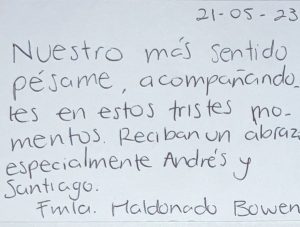 21-05-23
Nuestro más sentido
pésame, acompañando_
les en estos tristes mo-
mentos. Reciban un abraz
especialmente Andrés y
Santiago.
Fmla. Maldonado Bowen